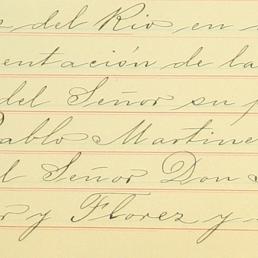 del Rio en
entación de la
del Señor su
Pablo Martine
l Señor Don
y Florez y